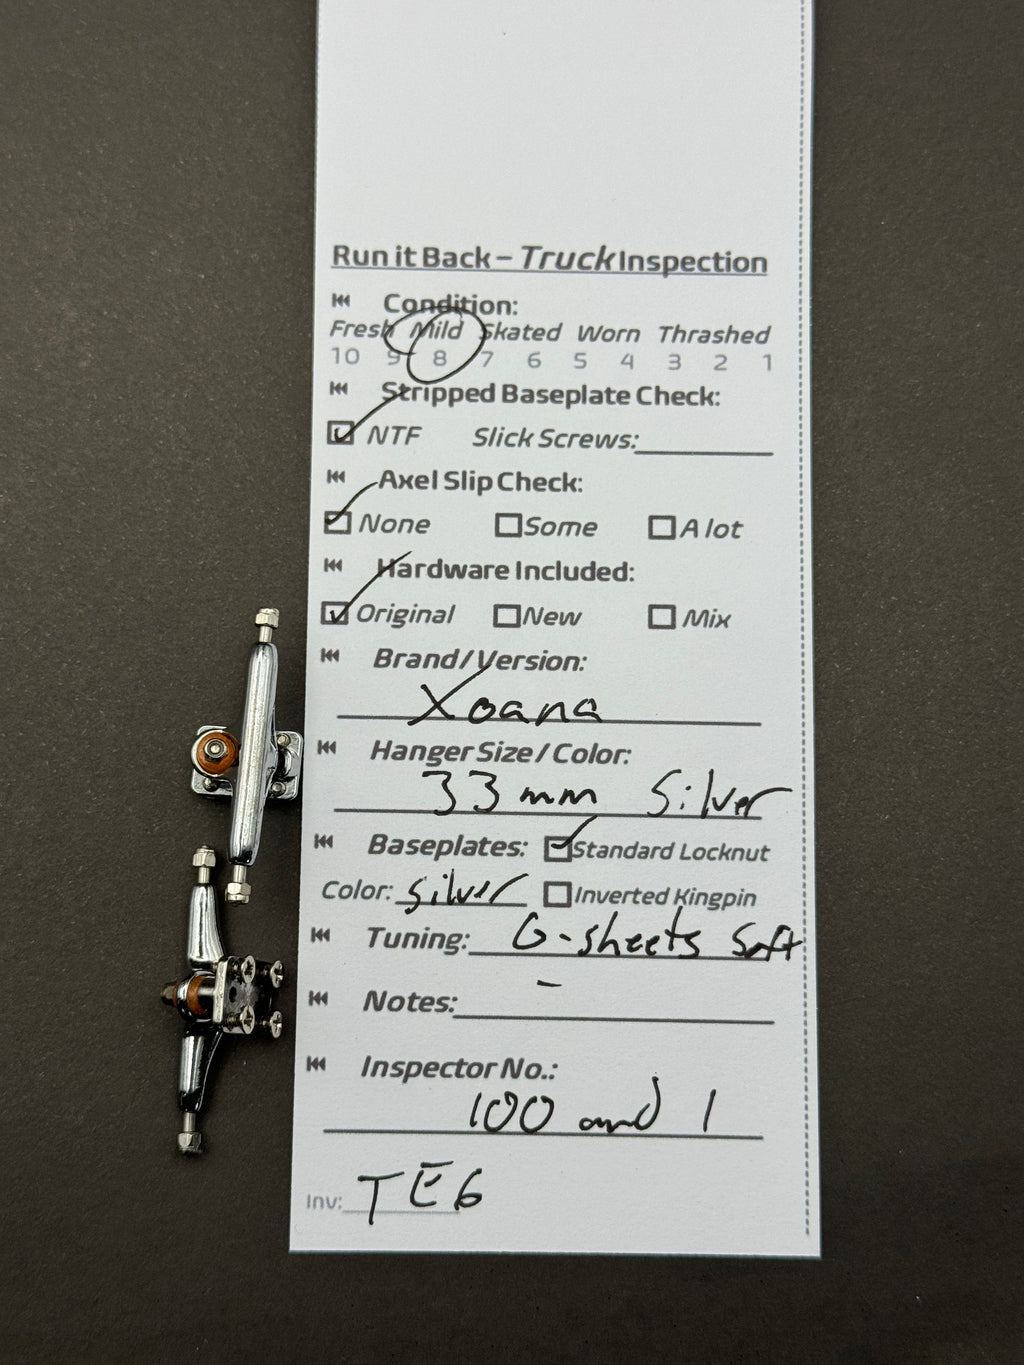 Run it Back – Truck Inspection
Condition:
Fresh Mild Skated Worn Thrashed
10 9 8 7 6 5 4 3 2 1
Stripped Baseplate Check:
NTF Slick Screws:
Axel Slip Check:
None Some A lot
Hardware Included:
Original New Mix
Brand/Version:
Xoana
Hanger Size/Color:
33mm Silver
Baseplates: Standard Locknut
Color: Silver Inverted Kingpin
Tuning: G-sheets Soft
Notes: –
Inspector No.:
100 and 1
Inv: TE6